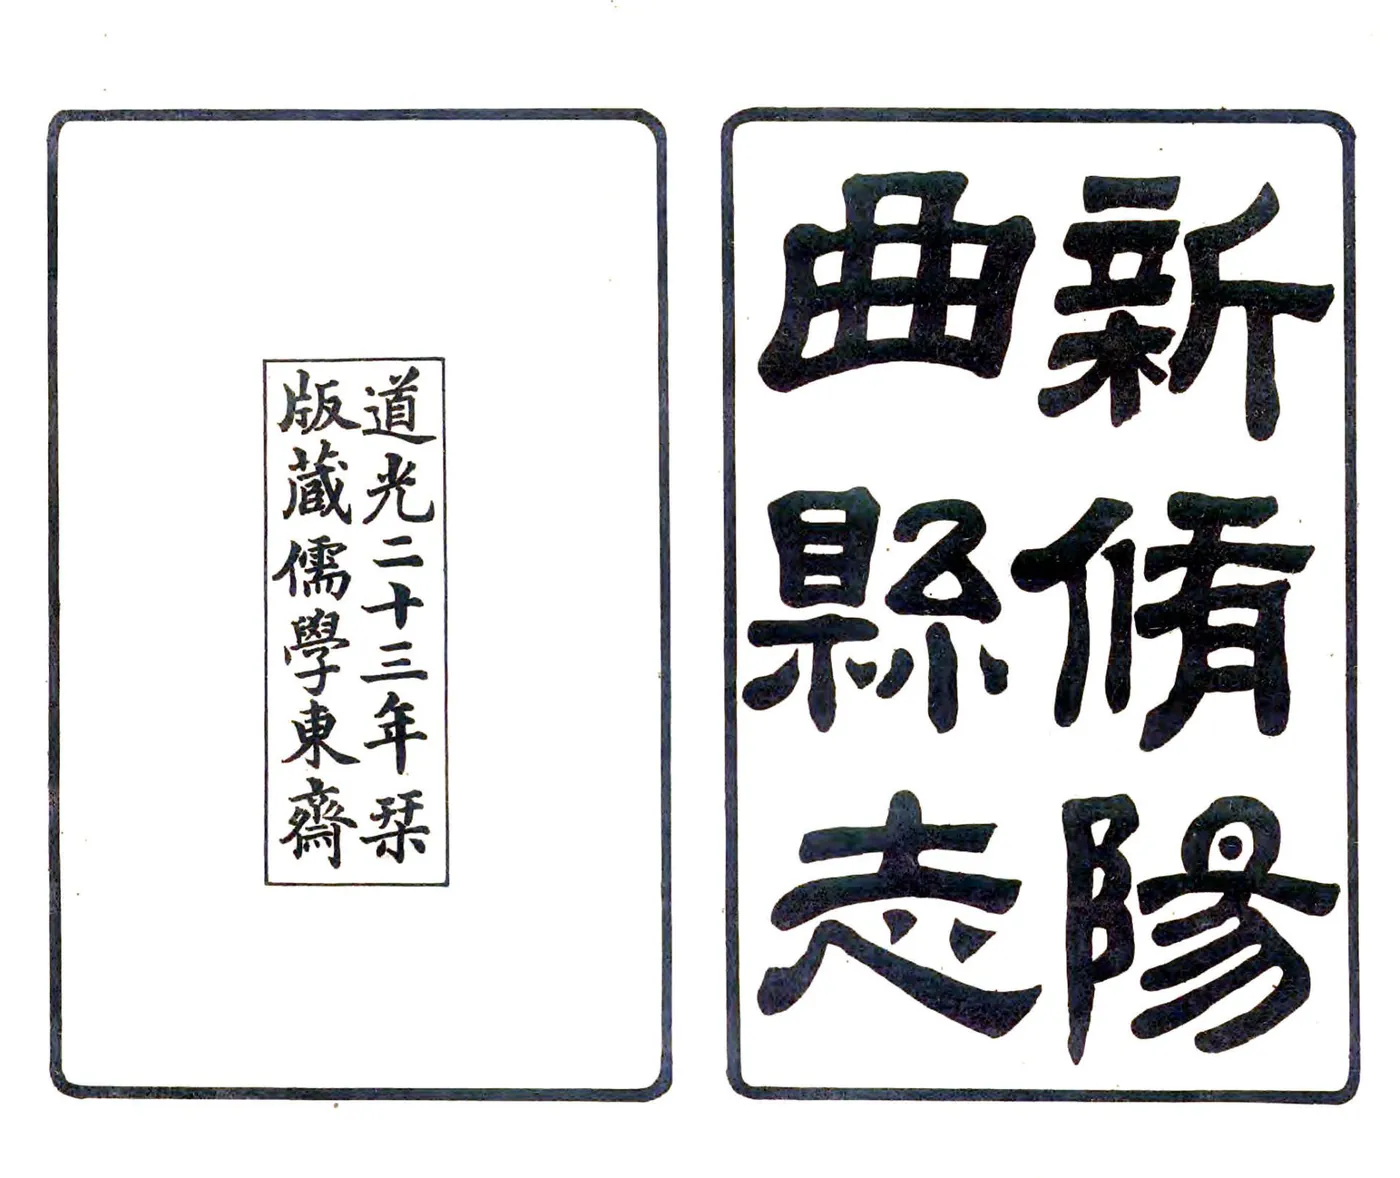 新脩陽
曲縣志
道光二十三年栞
版蔵儒學東齋